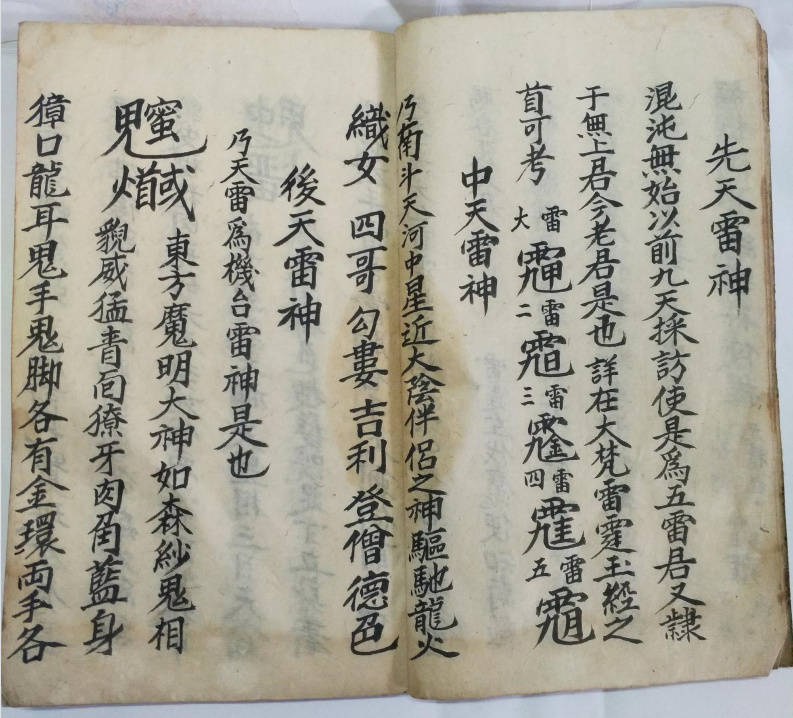 先天雷神
混沌無始以前九天採訪使是爲五雷君又隸
于無上君今老君是也 詳在大梵雷霆玉經之
首可考 大雷 二雷 三雷 四雷 五雷
中天雷神
乃南斗天河中星近大陰伴侶之神驅馳龍火
織女 四哥 勾婁 吉利 登僧 德邑
後天雷神
乃天雷爲機台雷神是也
東方魔明大神如森紗鬼相
貌威猛青面獠牙肉角藍身
獐口龍耳鬼手鬼脚各有金環両手各